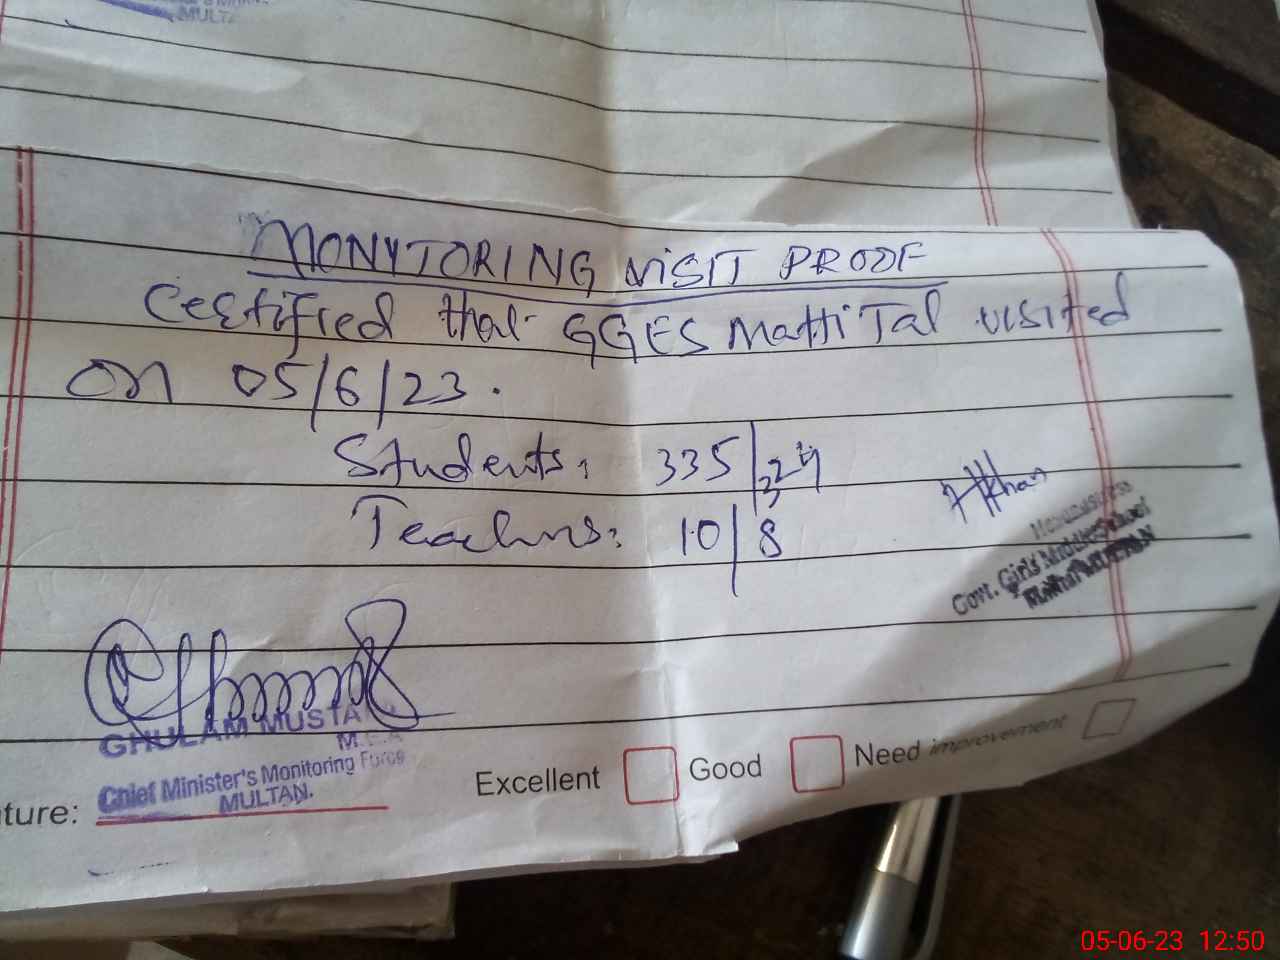 MULTA
MONYTORING VISIT PROOF
Certified that GGES Matti Tal visited
on 05/6/23.
Students: 335/324
Teachers: 10/8
Khan
Govt. Girls Middle School
GHULAM MUSTA
M.E.A
Chief Minister's Monitoring Force
MULTAN.
ture:
Excellent Good Need improvement
05-06-23 12:50